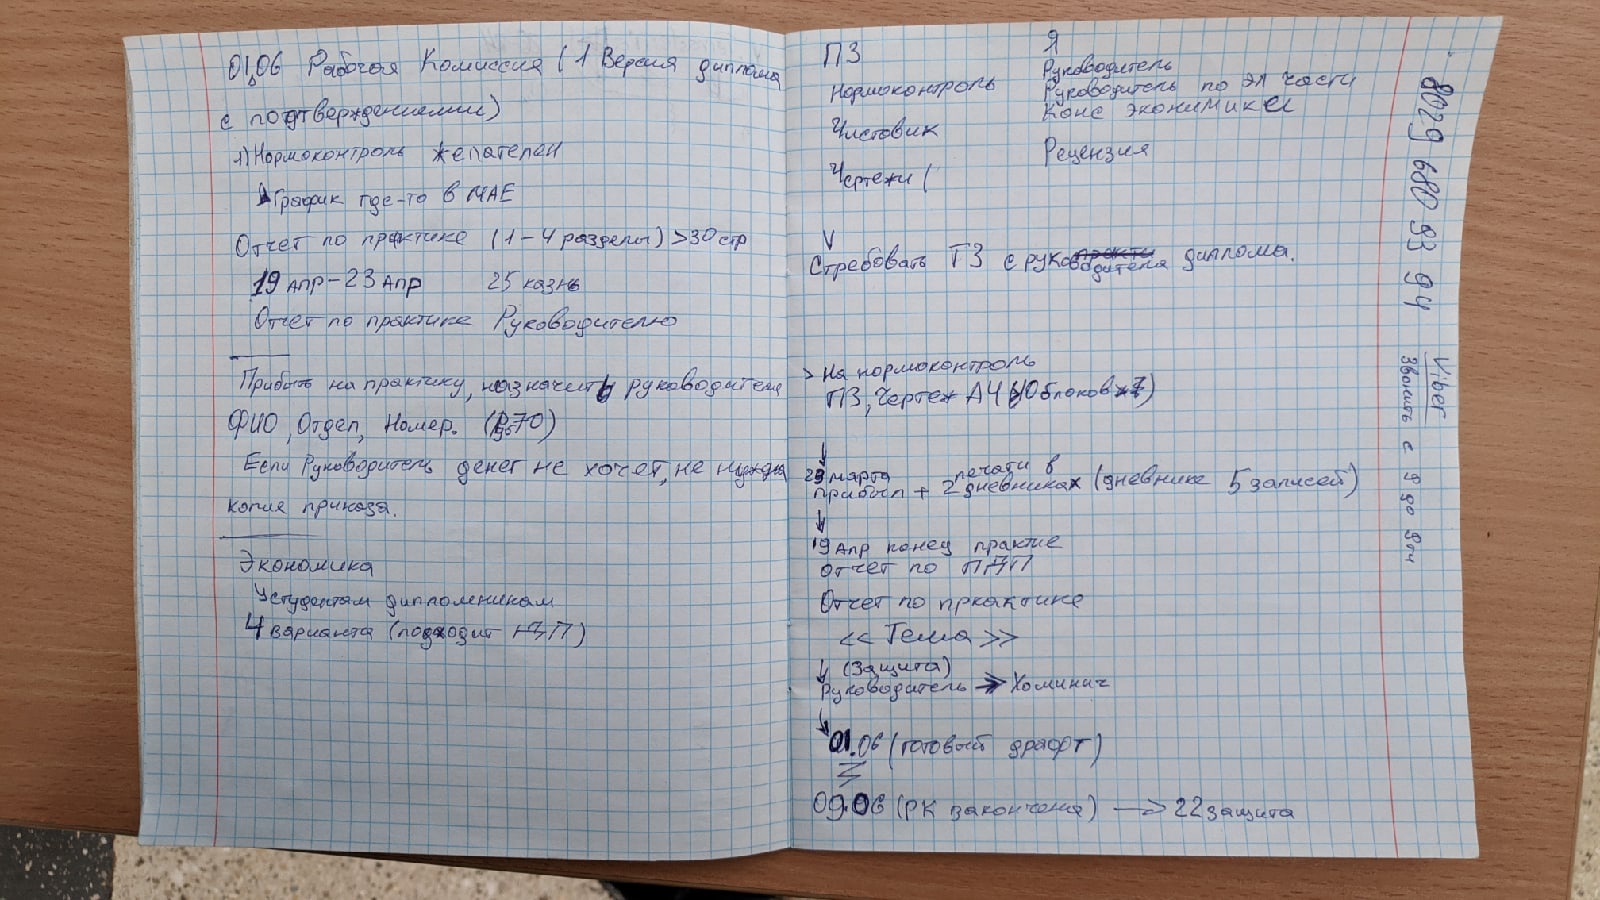 01.06 Рабочая Комиссия (1 Версия диплома
с подтверждениями)
1) Нормоконтроль желателен
График где-то в МАЕ
Отчет по практике (1-4 разделы) >30 стр
19 апр - 23 Апр 25 казнь
Отчет по практике Руководителю
Прибыть на практику, назначить руководителя
ФИО, Отдел, Номер.
Если Руководитель денег не хочет, не нужна
копия приказа.
Экономика
студентам дипломникам
4 варианта (подходит НДП)
ПЗ Я
Руководитель
Нормоконтроль Руководитель по эл части
Конс экономике
Чистовик
Рецензия
Чертежи (
V
Стребовать ТЗ с руководителя диплома.
> На нормоконтроль
ПЗ, Чертеж А4
29 марта печати в
прибыл + 2 дневниках (дневнике 5 записей)
19 Апр конец практие
отчет по ПДП
Отчет по пркактике
<< Тема >>
(Защита)
Руководитель -> Хоминич
01.06 (готовый драфт)
09.06 (РК закончена) -> 22 защита
8029 680 93 94
Viber
Звонить с 9 до 9